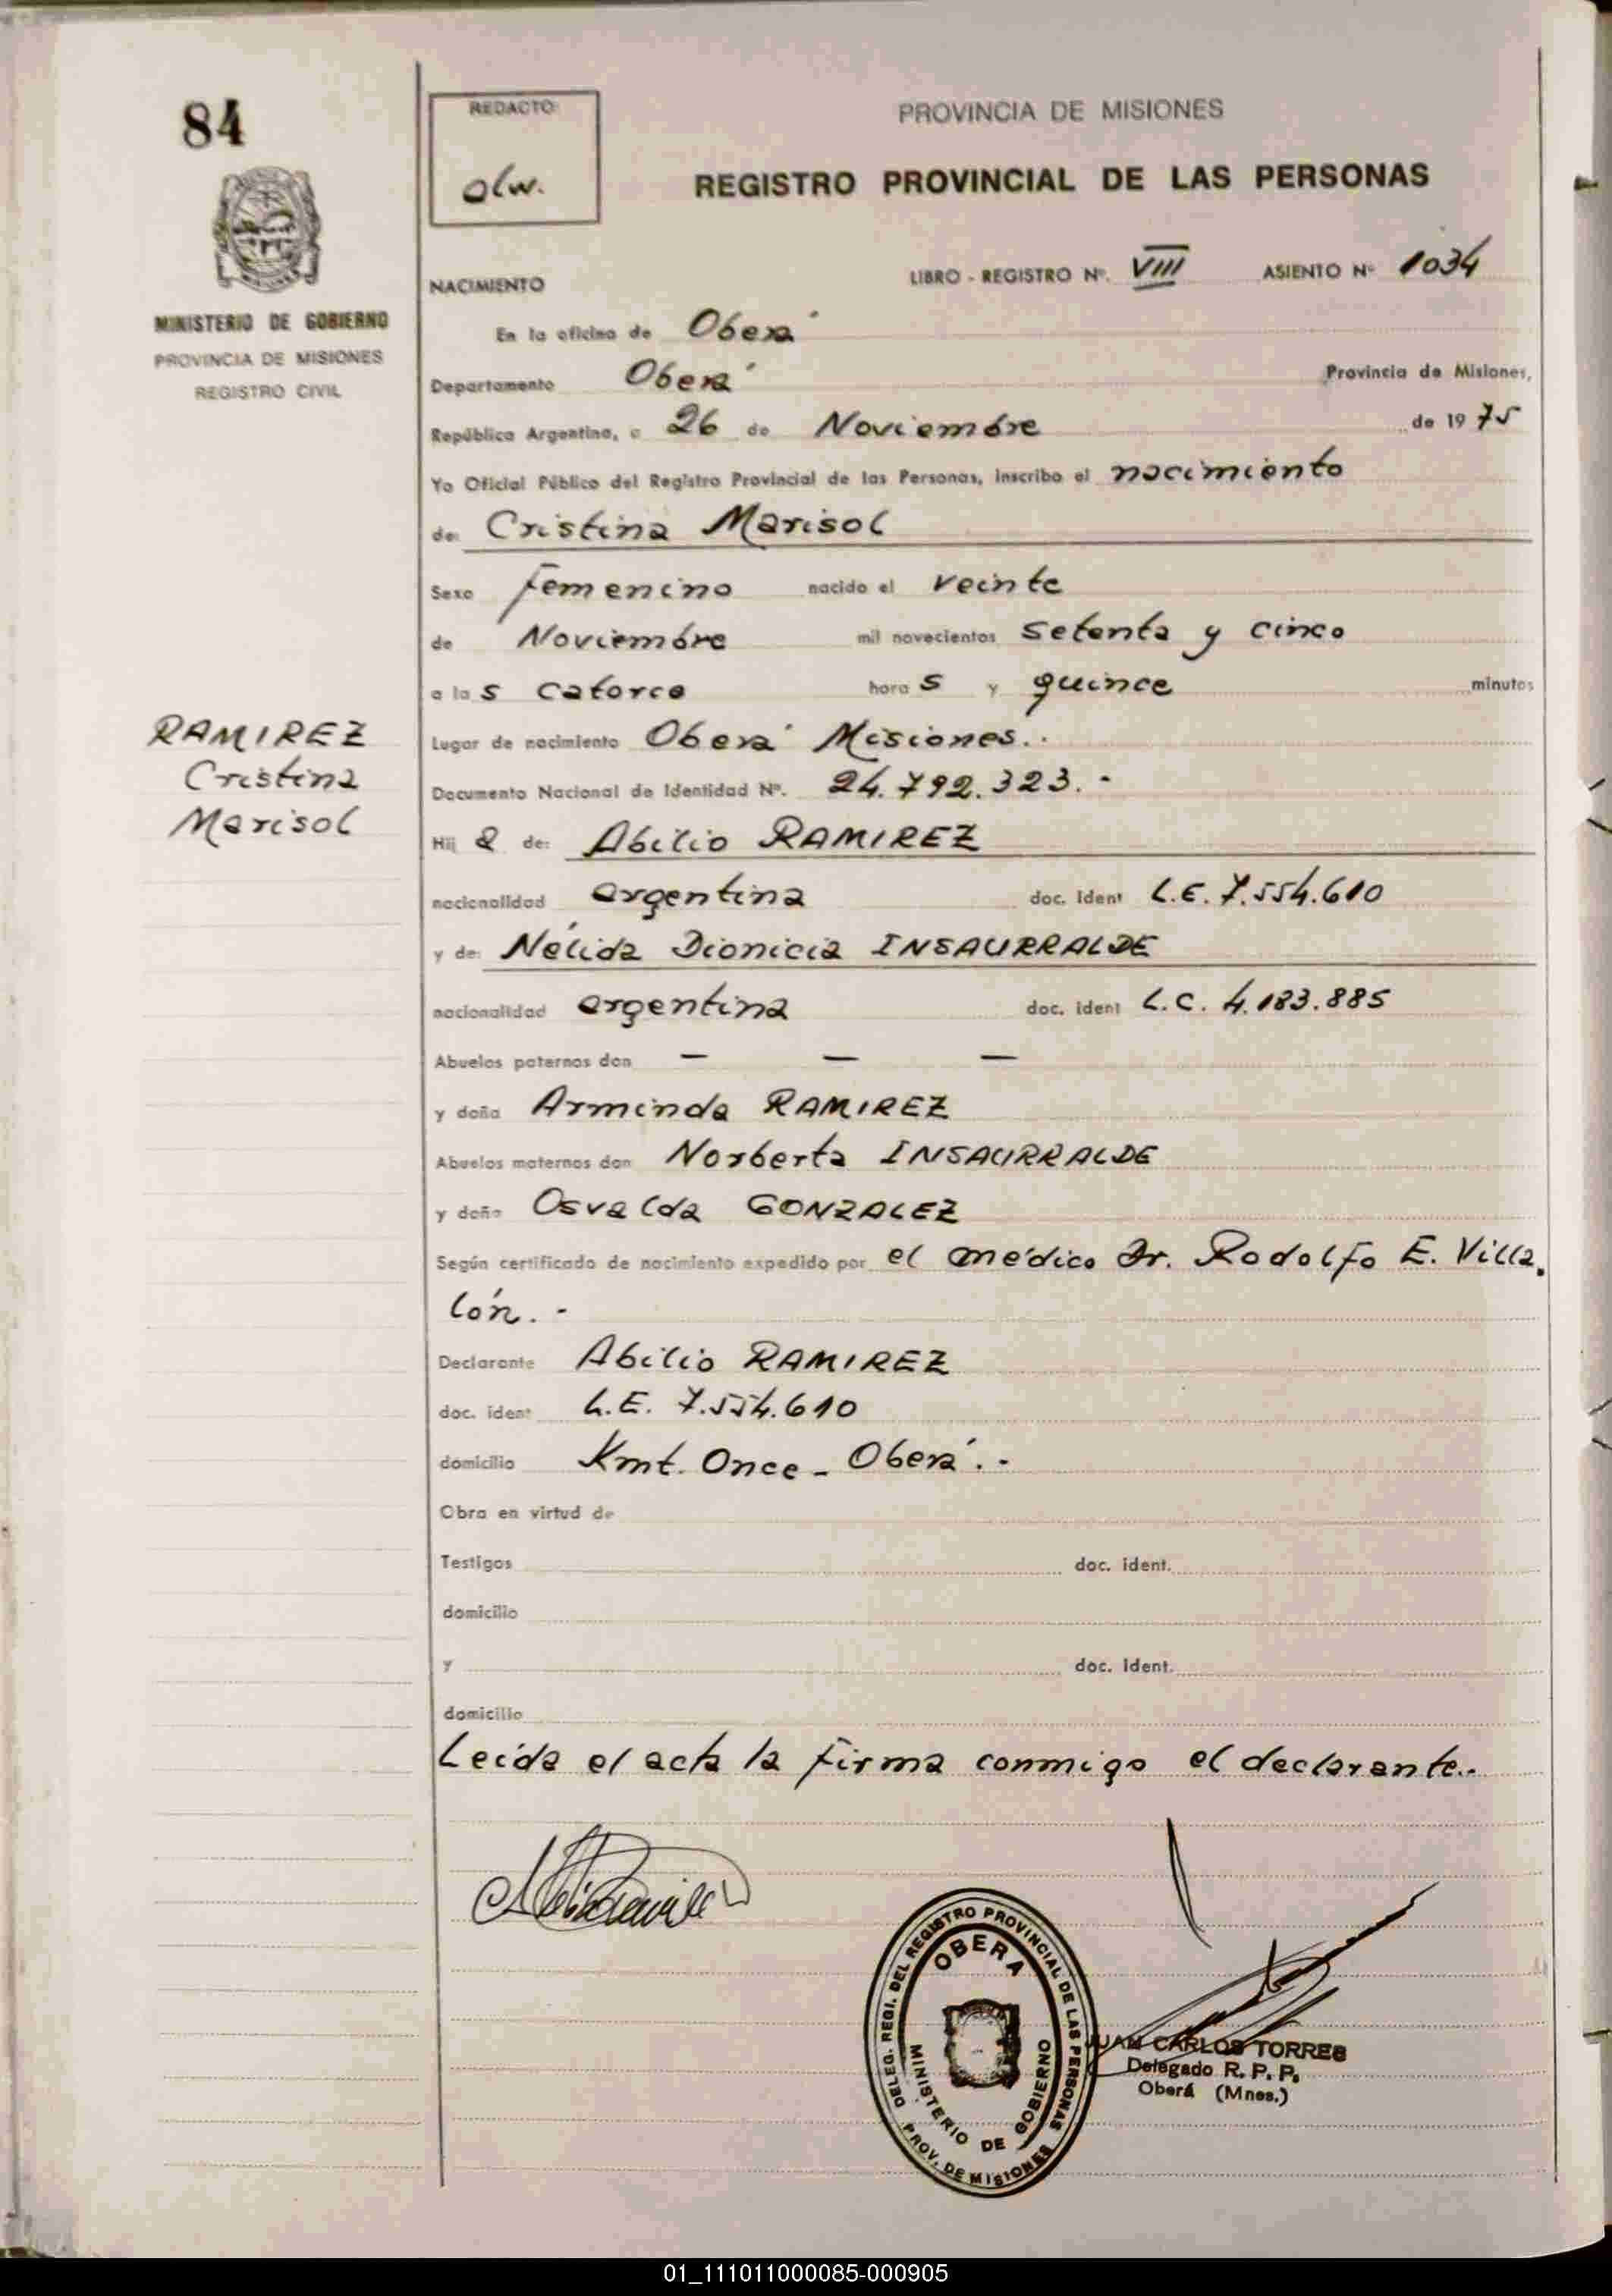 84
MINISTERIO DE GOBIERNO
PROVINCIA DE MISIONES
REGISTRO CIVIL
RAMIREZ
Cristina
Marisol
REDACTO
olw.
PROVINCIA DE MISIONES
REGISTRO PROVINCIAL DE LAS PERSONAS
NACIMIENTO LIBRO - REGISTRO Nº. VIII ASIENTO Nº 1034
En la oficina de Oberá
Departamento Oberá Provincia de Misiones,
República Argentina, a 26 de Noviembre de 1975
Yo Oficial Público del Registro Provincial de las Personas, inscribo el nacimiento
de: Cristina Marisol
Sexo femenino nacido el veinte
de Noviembre mil novecientos setenta y cinco
a las catorce horas y quince minutos
Lugar de nacimiento Oberá Misiones.-
Documento Nacional de Identidad Nº. 24.792.323.-
Hija de: Abilio RAMIREZ
nacionalidad argentina doc. ident L.E. 7.554.610
y de: Nélida Dionicia INSAURRALDE
nacionalidad argentina doc. ident L.C. 4.183.885
Abuelos paternos don — — —
y doña Arminda RAMIREZ
Abuelos maternos don Norberta INSAURRALDE
y doña Osvalda GONZALEZ
Según certificado de nacimiento expedido por el médico Dr. Rodolfo E. Villa.
lón.-
Declarante Abilio RAMIREZ
doc. ident L.E. 7.554.610
domicilio Kmt. Once - Oberá.-
Obra en virtud de
Testigos doc. ident.
domicilio
y doc. ident.
domicilio
Leída el acta la firma conmigo el declarante.-
DELEG. REGI. DEL REGISTRO PROVINCIAL DE LAS PERSONAS
OBERA
MINISTERIO DE GOBIERNO
PROV. DE MISIONES
JUAN CARLOS TORRES
Delegado R. P. P.
Oberá (Mnes.)
01_111011000085-000905